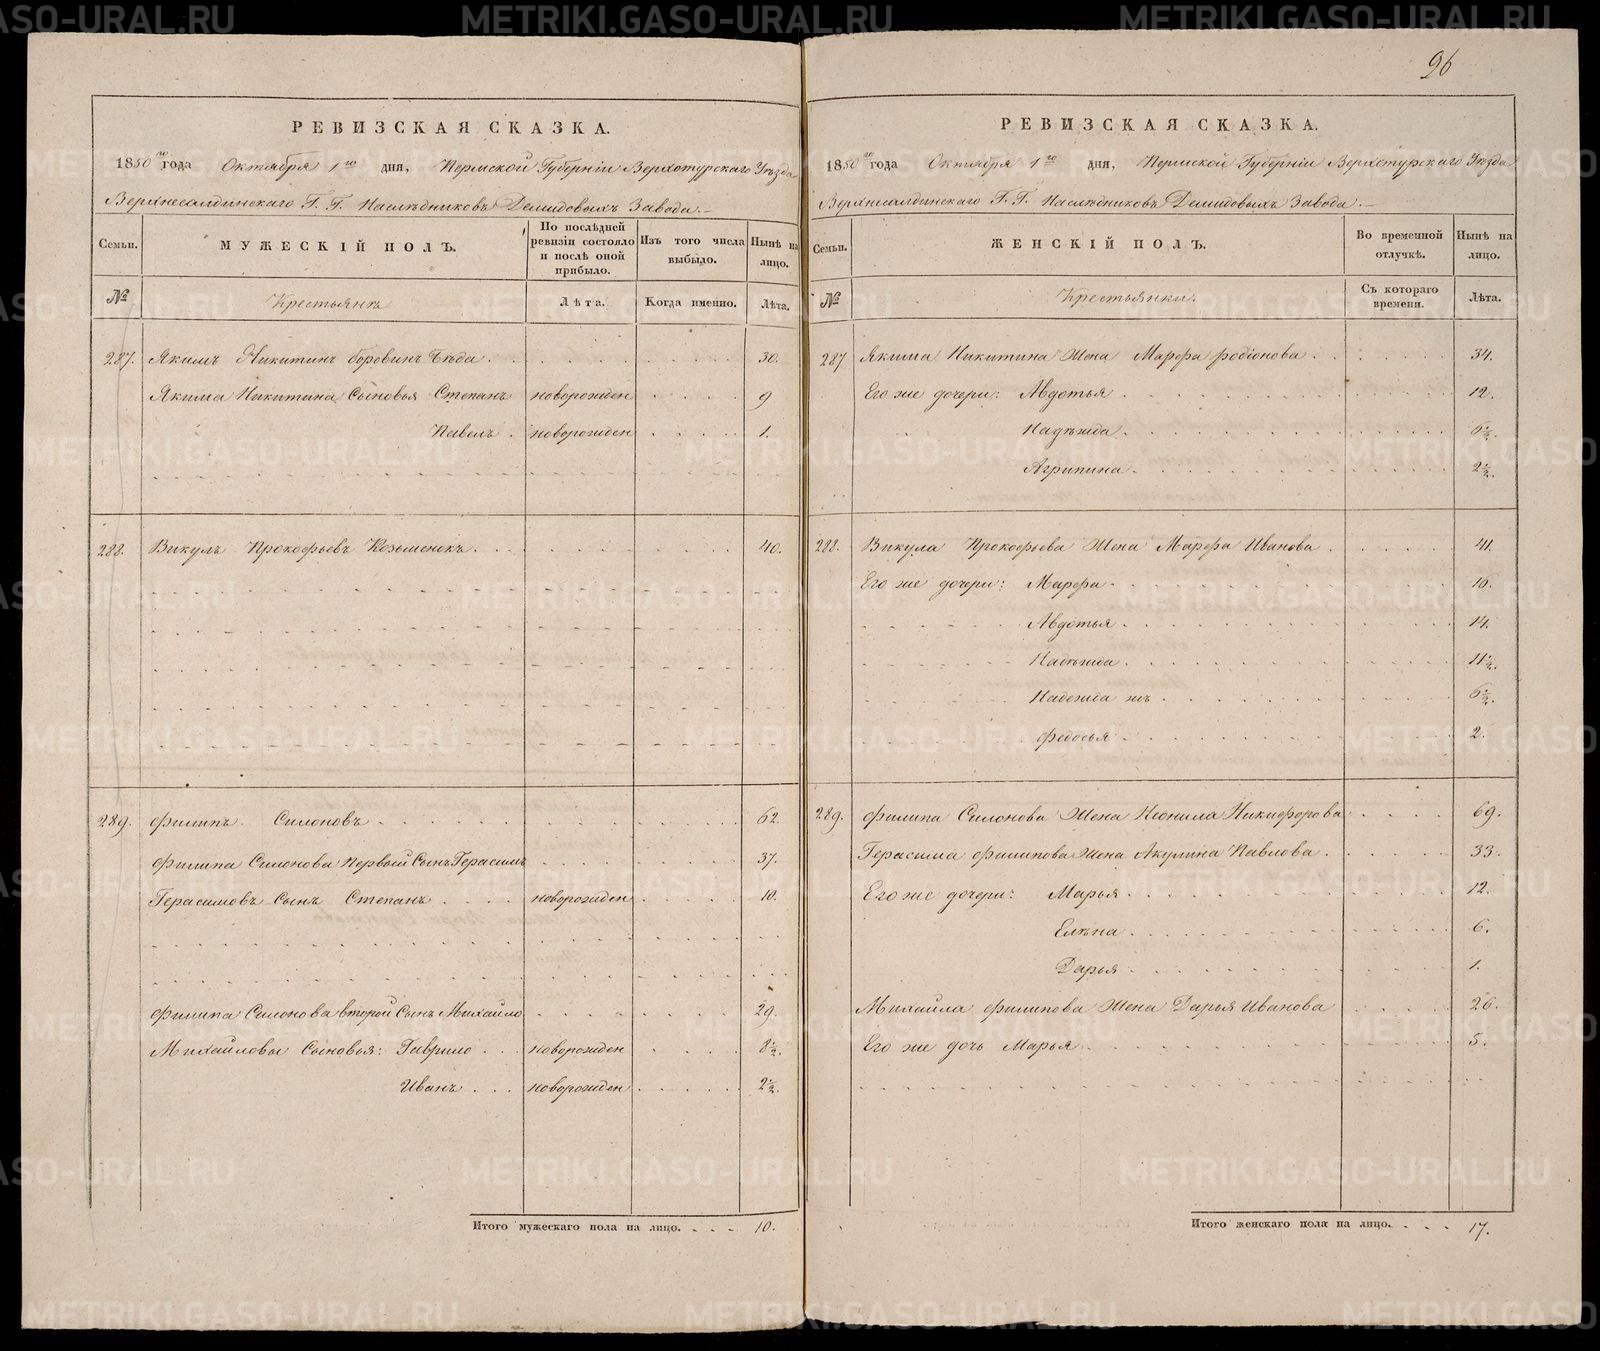 96
РЕВИЗСКАЯ СКАЗКА.
1850го года Октября 1го дня, Пермской Губерніи Верхотурскаго Уѣзда
Верхнесалдинскаго Г. Г. Наслѣдниковъ Демидовыхъ Завода.
Семьи. МУЖЕСКІЙ ПОЛЪ. По послѣдней ревизіи состояло и послѣ оной прибыло. Изъ того числа выбыло. Нынѣ на лицо.
№ Крестьянѣ Лѣта. Когда именно. Лѣта.
287. Якимъ Никитинъ Боровинъ Бѣда. 30.
Якима Никитина Сыновья Степанъ новорожден 9
Павелъ. новорожден 1.
288. Викулъ Прокофьевъ 40.
289. Филипъ Симоновъ 62.
Филипа Симонова Первый Сынъ Герасимъ 37.
Герасимовъ Сынъ Степанъ новорожден 10.
Филипа Симонова второй Сынъ Михайло 29.
Михайловы Сыновья: Гаврило новорожден 8 1/2.
Иванъ новорожден 2 1/2.
Итого мужескаго пола на лицо. 10.
РЕВИЗСКАЯ СКАЗКА.
1850го года Октября 1го дня, Пермской Губерніи Верхотурскаго Уѣзда
Верхнесалдинскаго Г. Г. Наслѣдниковъ Демидовыхъ Завода.
Семьи. ЖЕНСКІЙ ПОЛЪ. Во временной отлучкѣ. Нынѣ на лицо.
№ Крестьянки. Съ котораго времени. Лѣта.
287 Якима Никитина Жена Марфа Родіонова. 34.
Его же дочери: Авдотья 12.
Надѣжда 6 1/2.
Агрипина 2 1/2.
288. Викула Прокофьева Жена Марфа Иванова 41.
Его же дочери: Марфа 10.
Авдотья 14.
Надѣжда 11 1/2.
Надежда жъ 6 1/2.
Федосья 2.
289. Филипа Симонова Жена Неонила Никифорова 69.
Герасима Филипова Жена Акулина Павлова. 33.
Его же дочери: Марья 12.
Елѣна 6.
Дарья 1.
Михайла Филипова Жена Дарья Иванова 26.
Его же дочь Марья 5.
Итого женскаго пола на лицо. 17.
METRIKI.GASO-URAL.RU